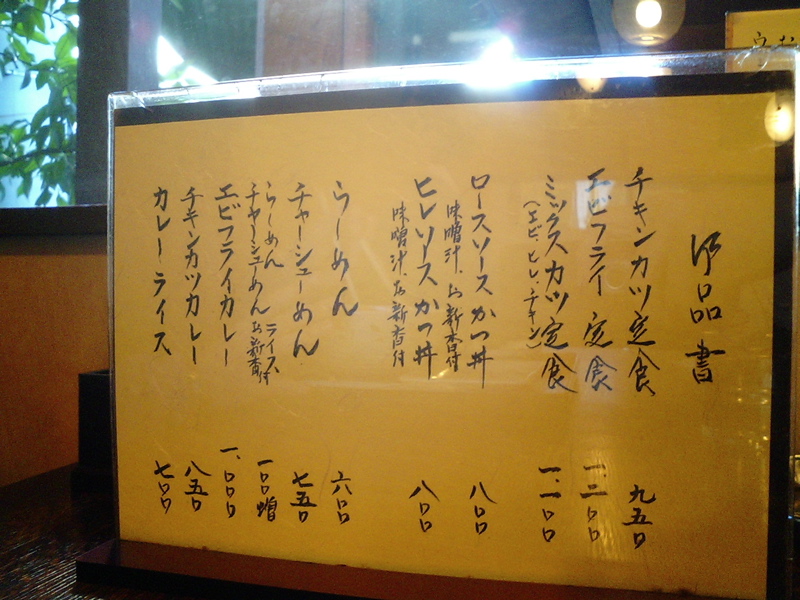 御品書
チキンカツ定食 九五〇
エビフライ定食 一、二〇〇
ミックスカツ定食 一、一〇〇
(エビ、ヒレ、チキン)
ロースソースかつ丼 八〇〇
味噌汁、お新香付
ヒレソースかつ丼 八〇〇
味噌汁、お新香付
らーめん 六〇〇
チャーシューめん 七五〇
らーめん
チャーシューめん ライス、お新香付 一〇〇増
エビフライカレー 一、〇〇〇
チキンカツカレー 八五〇
カレーライス 七〇〇